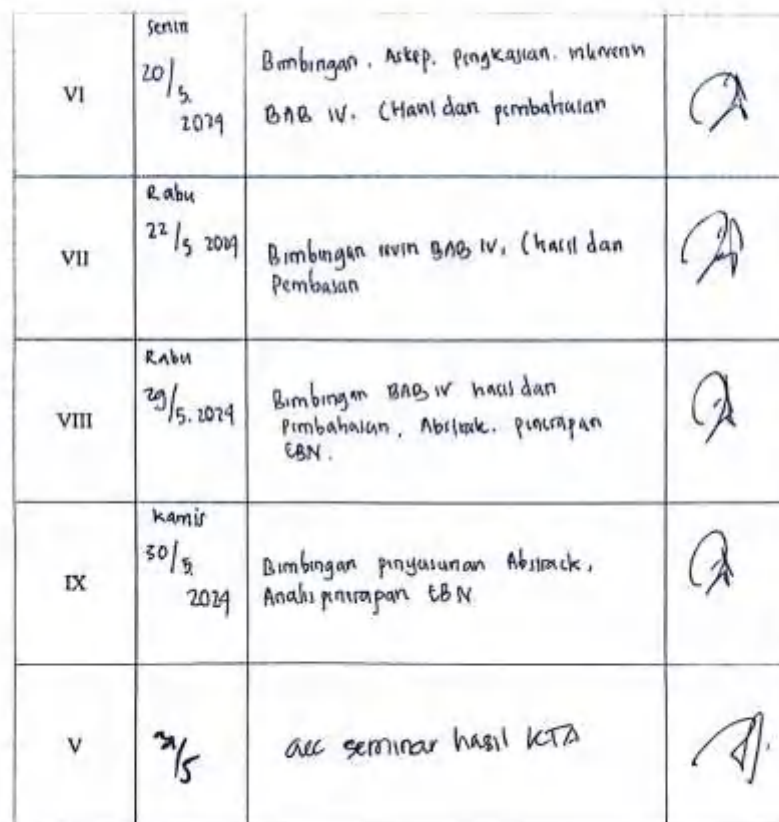 VI
Senin
20/5.
2024
Bimbingan. Askep. Pengkajian. intervensi
BAB IV. (Hasil dan pembahasan
VII
Rabu
22/5 2024
Bimbingan revisi BAB IV. (hasil dan
Pembasan
VIII
Rabu
29/5.2024
Bimbingan BAB IV hasil dan
Pembahasan, Abstrak. penerapan
EBN.
IX
Kamis
30/5.
2024
Bimbingan penyusunan Abstrack,
Analis penerapan EBN
V
31/5
acc seminar hasil KTA